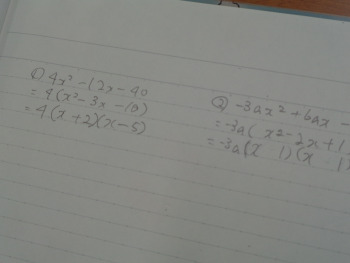 ① 4x² - 12x - 40
= 4(x² - 3x - 10)
= 4(x + 2)(x - 5)
② -3ax² + 6ax -
= -3a( x² - 2x + 1)
= -3a(x 1)(x 1)